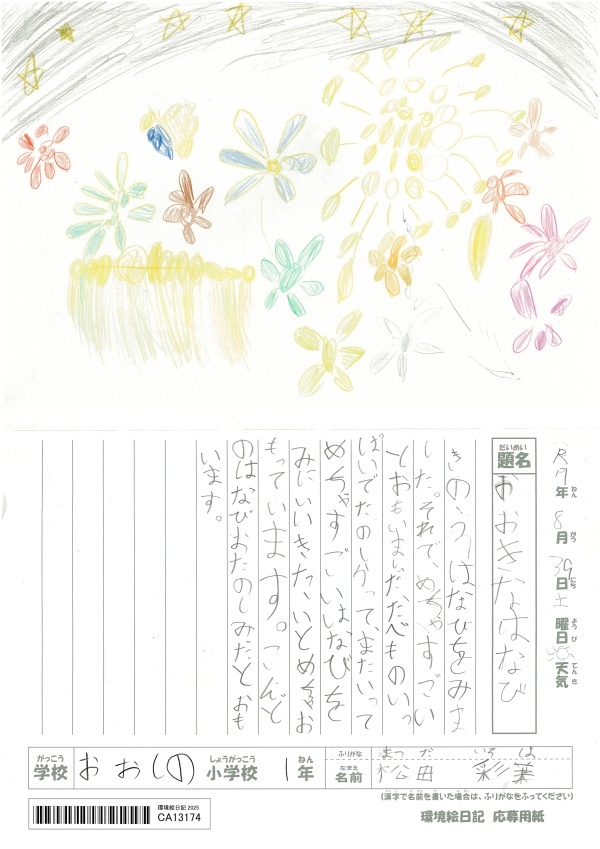 R7年 8月 30日 土曜日 天気
ねん がつ にち ようび てんき
だいめい
題名 おおきなはなび
きのうはなびをみま
した。それで、めちゃすごい
とおもいました、たべものいっ
ぱいでたのしかって、またいって
めちゃすごいはなびを
みにいいきたいとめちゃお
もっています。こんど
のはなびおたのしみだとおも
います。
がっこう しょうがっこう ねん ふりがな まつ だ いろ は
学校 おおしの 小学校 1年 なまえ 名前 松田 彩葉
(漢字で名前を書いた場合は、ふりがなをふってください)
環境絵日記 応募用紙
環境絵日記 2025
CA13174